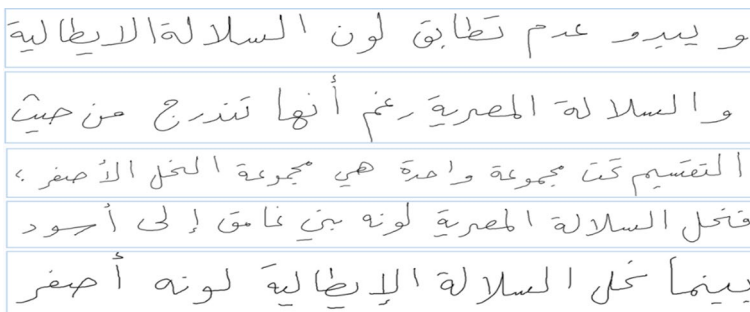 و يبدو عدم تطابق لون السلالة الايطالية
والسلالة المصرية رغم أنها تندرج من حيث
التقسيم تحت مجموعة واحدة هي مجموعة النحل الأصفر ؛
فنحل السلالة المصرية لونه بني غامق إلى أسود
بينما نحل السلالة الإيطالية لونه أصفر